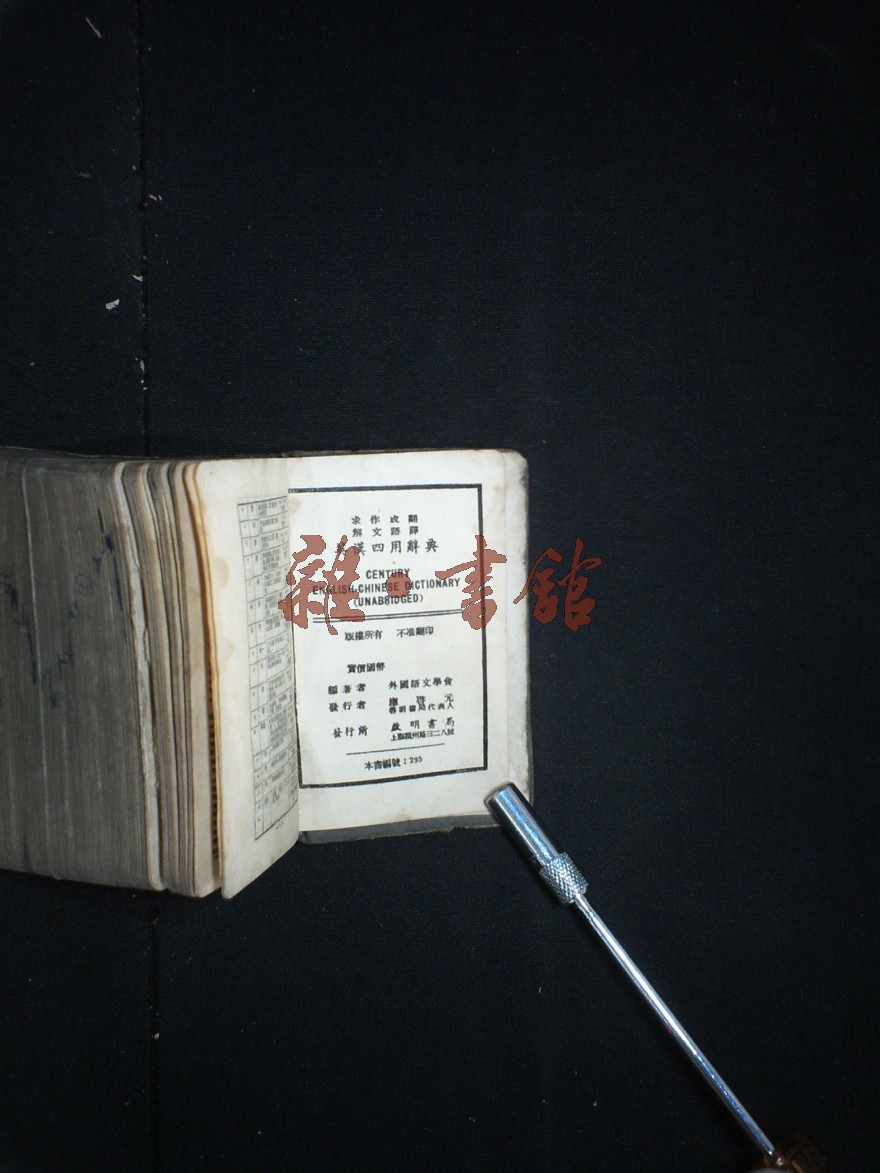 求作成翻
解文語譯
英漢四用辭典
CENTURY
ENGLISH-CHINESE DICTIONARY
(UNABRIDGED)
版權所有 不准翻印
實價國幣
編著者 外國語文學會
發行者 應啓元
啓明書局代表人
發行所 啟明書局
上海福州路三二八號
本書編號:293
雜·書館